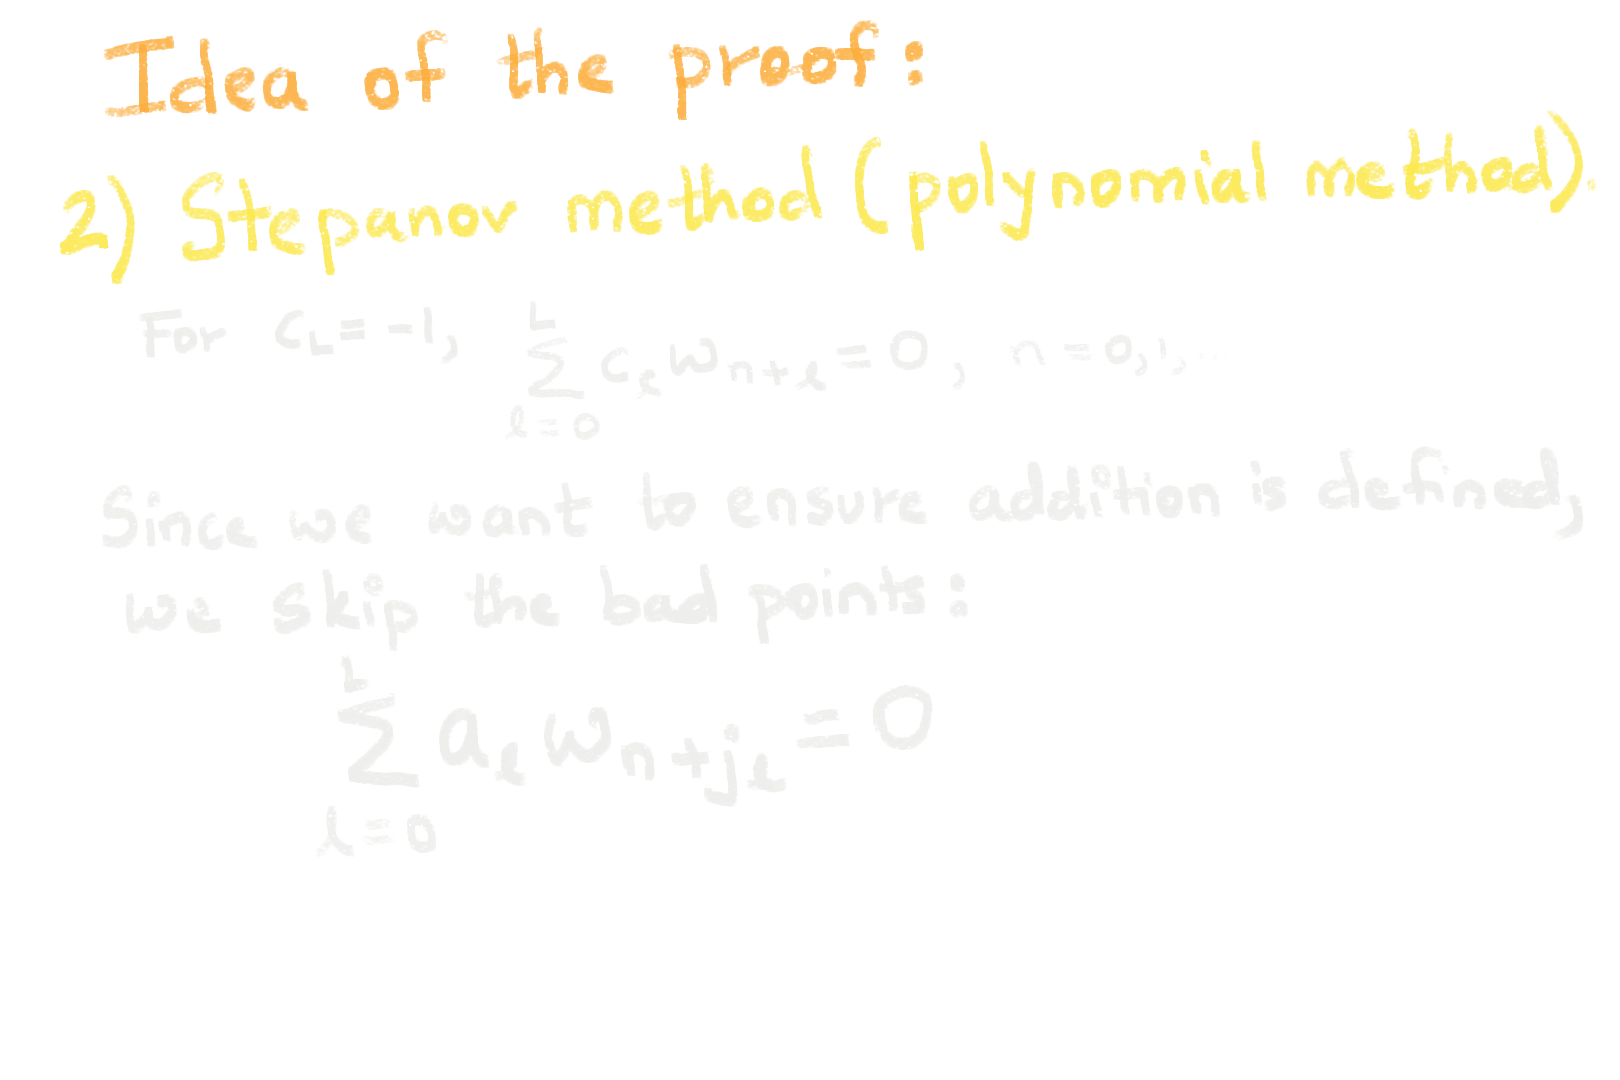 Idea of the proof:
2) Stepanov method (polynomial method).
For C_L = -1, \sum_{l=0}^{L} c_l w_{n+l} = 0, n = 0, 1, ...
Since we want to ensure addition is defined,
we skip the bad points:
\sum_{l=0}^{L} a_l w_{n+j_l} = 0